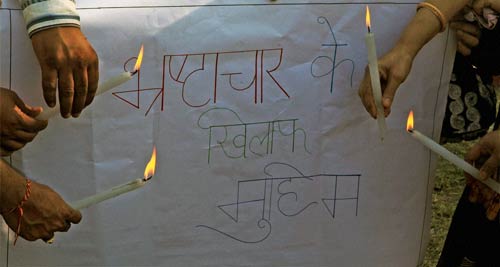 भ्रष्टाचार के
खिलाफ
मुहिम